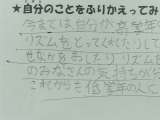 ★自分のことをふりかえってみ
今までは自分が高学年
リズムをとってくれたりして
せなかをおしたり リズム
のみなさんの気持ちが
これからも低学年の人に